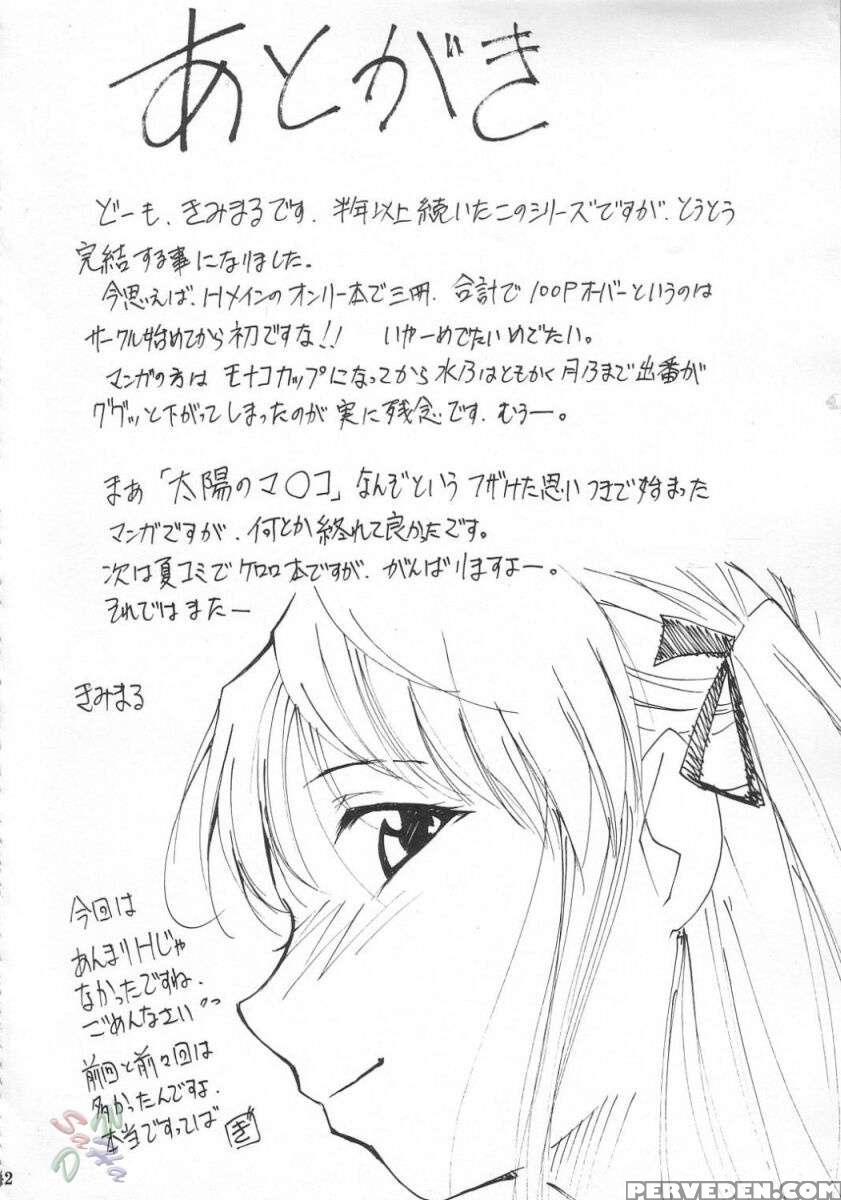 あとがき
どーも、きみまるです。半年以上続いたこのシリーズですが、とうとう
完結する事になりました。
今思えば、Hメインのオンリー本で三冊、合計で100Pオーバーというのは
サークル始めてから初ですな!! いやーめでたいめでたい。
マンガの方はモナコカップになってから水乃はともかく月乃まで出番が
ググッと下がってしまったのが実に残念です、むぅー。
まぁ「太陽のマ○コ」なんぞというフザけた思いつきで始まった
マンガですが、何とか終れて良かったです。
次は夏コミでケロロ本ですが、がんばりますよー。
それではまたー
きみまる
今回は
あんまりHじゃ
なかったですね、
ごめんなさい
前回と前々回は
多かったんですよ、
本当ですってば ぎ
42
PERVEDEN.COM